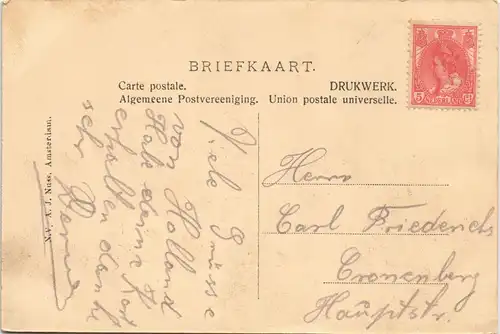 BRIEFKAART.
Carte postale. DRUKWERK.
Algemeene Postvereeniging. Union postale universelle.
N.V. A. J. Nuss. Amsterdam.
5 ct
NEDERLAND
Viele Grüsse
von Holland
Habe deine Kart
erhalten danke
sehr
Herrn
Carl Friederichs
Cronenberg
Hauptstr.